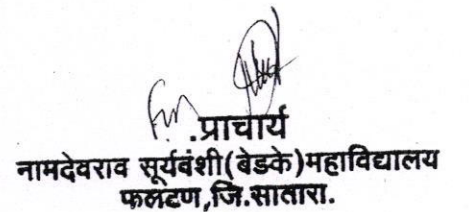 .प्राचार्य
नामदेवराव सूर्यवंशी(बेडके)महाविद्यालय
फलटण,जि.सातारा.